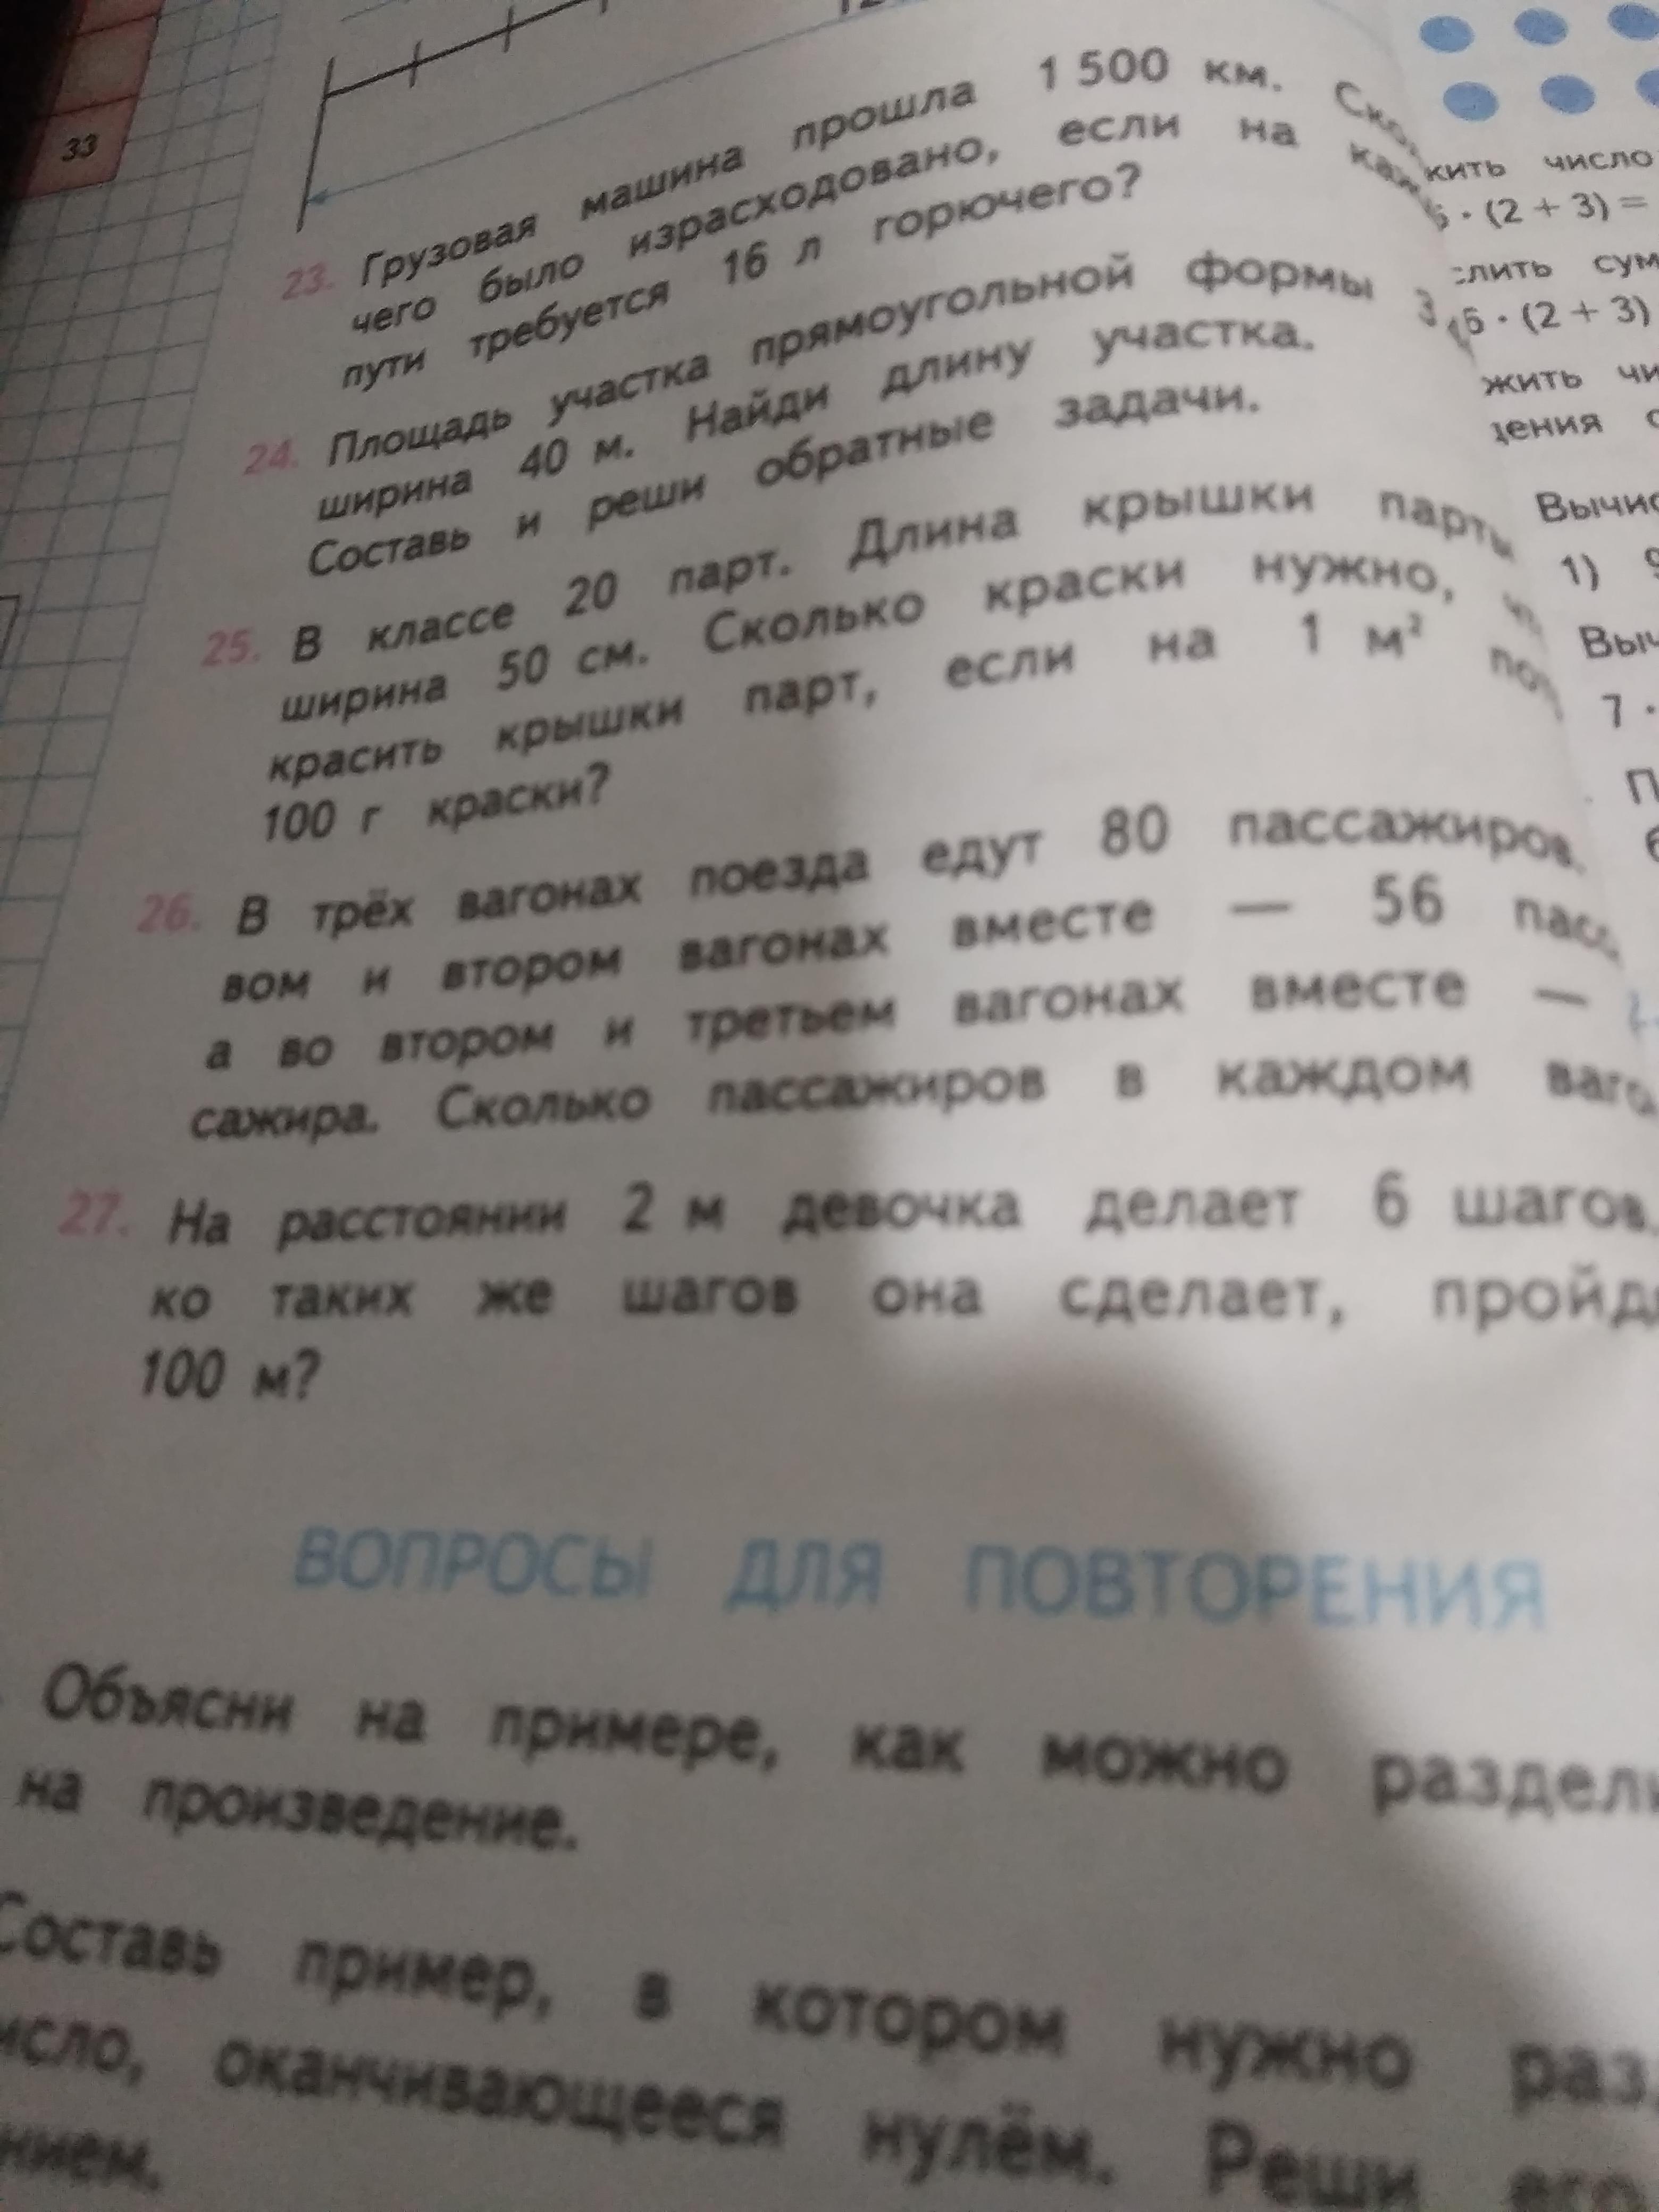 33
23. Грузовая машина прошла 1 500 км.
чего было израсходовано, если на
пути требуется 16 л горючего?
24. Площадь участка прямоугольной формы 3
ширина 40 м. Найди длину участка.
Составь и реши обратные задачи.
25. В классе 20 парт. Длина крышки парты
ширина 50 см. Сколько краски нужно,
красить крышки парт, если на 1 м²
100 г краски?
26. В трёх вагонах поезда едут 80 пассажиров.
вом и втором вагонах вместе — 56
а во втором и третьем вагонах вместе —
сажира. Сколько пассажиров в каждом
27. На расстоянии 2 м девочка делает 6 шагов.
ко таких же шагов она сделает,
100 м?
ВОПРОСЫ ДЛЯ ПОВТОРЕНИЯ
Объясни на примере, как можно
на произведение.
Составь пример, в котором нужно
оканчивающееся нулём. Реши
жить число
· (2 + 3) =
сум
5 · (2 + 3)
жить чи
дения
Вычис
1) 9
Выч
7 ·